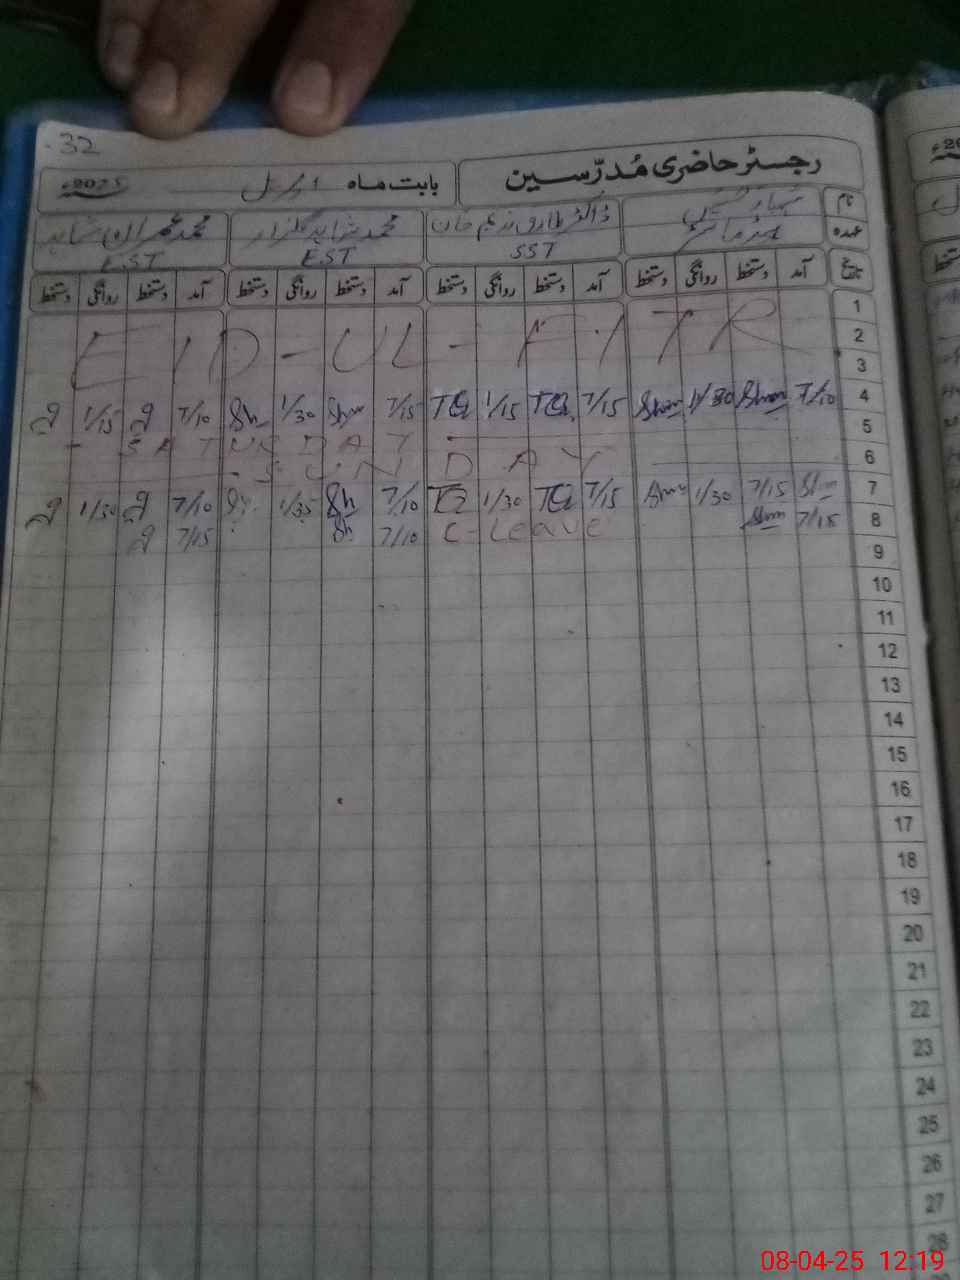 32
رجسٹر حاضری مُدرّسین
بابت ماہ اپریل 2025ء
نام
عہدہ
ڈاکٹر طارق ندیم خان
SST
محمد شاہد گلزار
EST
محمد عمران شاہد
EST
تاریخ آمد دستخط روانگی دستخط آمد دستخط روانگی دستخط آمد دستخط روانگی دستخط آمد دستخط روانگی دستخط
1
2 EID-UL-FITR
3
4 7/10 1/30 7/15 TQ 1/15 TQ 7/15 Sh 1/30 Sh 7/10 1/15
5 SATURSDAY
6 SUNDAY
7 7/15 1/30 7/15 TQ 1/30 TQ 7/10 Sh 1/35 7/10 1/30
8 7/15 C-Leave 7/10 Sh 7/15
9
10
11
12
13
14
15
16
17
18
19
20
21
22
23
24
25
26
27
28
08-04-25 12:19